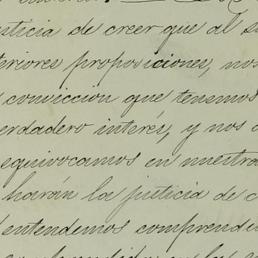 usticia de creer que al s
teriores proposiciones, nos
conviccion que tenemos
erdadero interés, y nos
equivocamos en nuestra
harán la justicia de c
entendemos comprendi